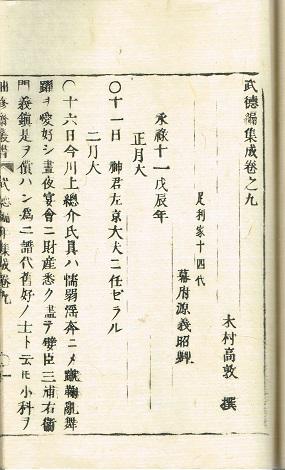 武德編集成卷之九
木村高敦 撰
足利家十四代
幕府源義昭卿
永祿十一戊辰年
正月大
〇十一日 神君左京大夫ニ任ゼラル
二月大
〇十六日今川上總介氏眞ハ懦弱滛奔ニメ蹴鞠亂舞
躍ヲ愛好シ晝夜宴會ニ財産悉ク盡テ嬖臣三浦右衞
門義鎭是ヲ償ハン爲ニ譜代舊好ノ士ト云モ小科ヲ